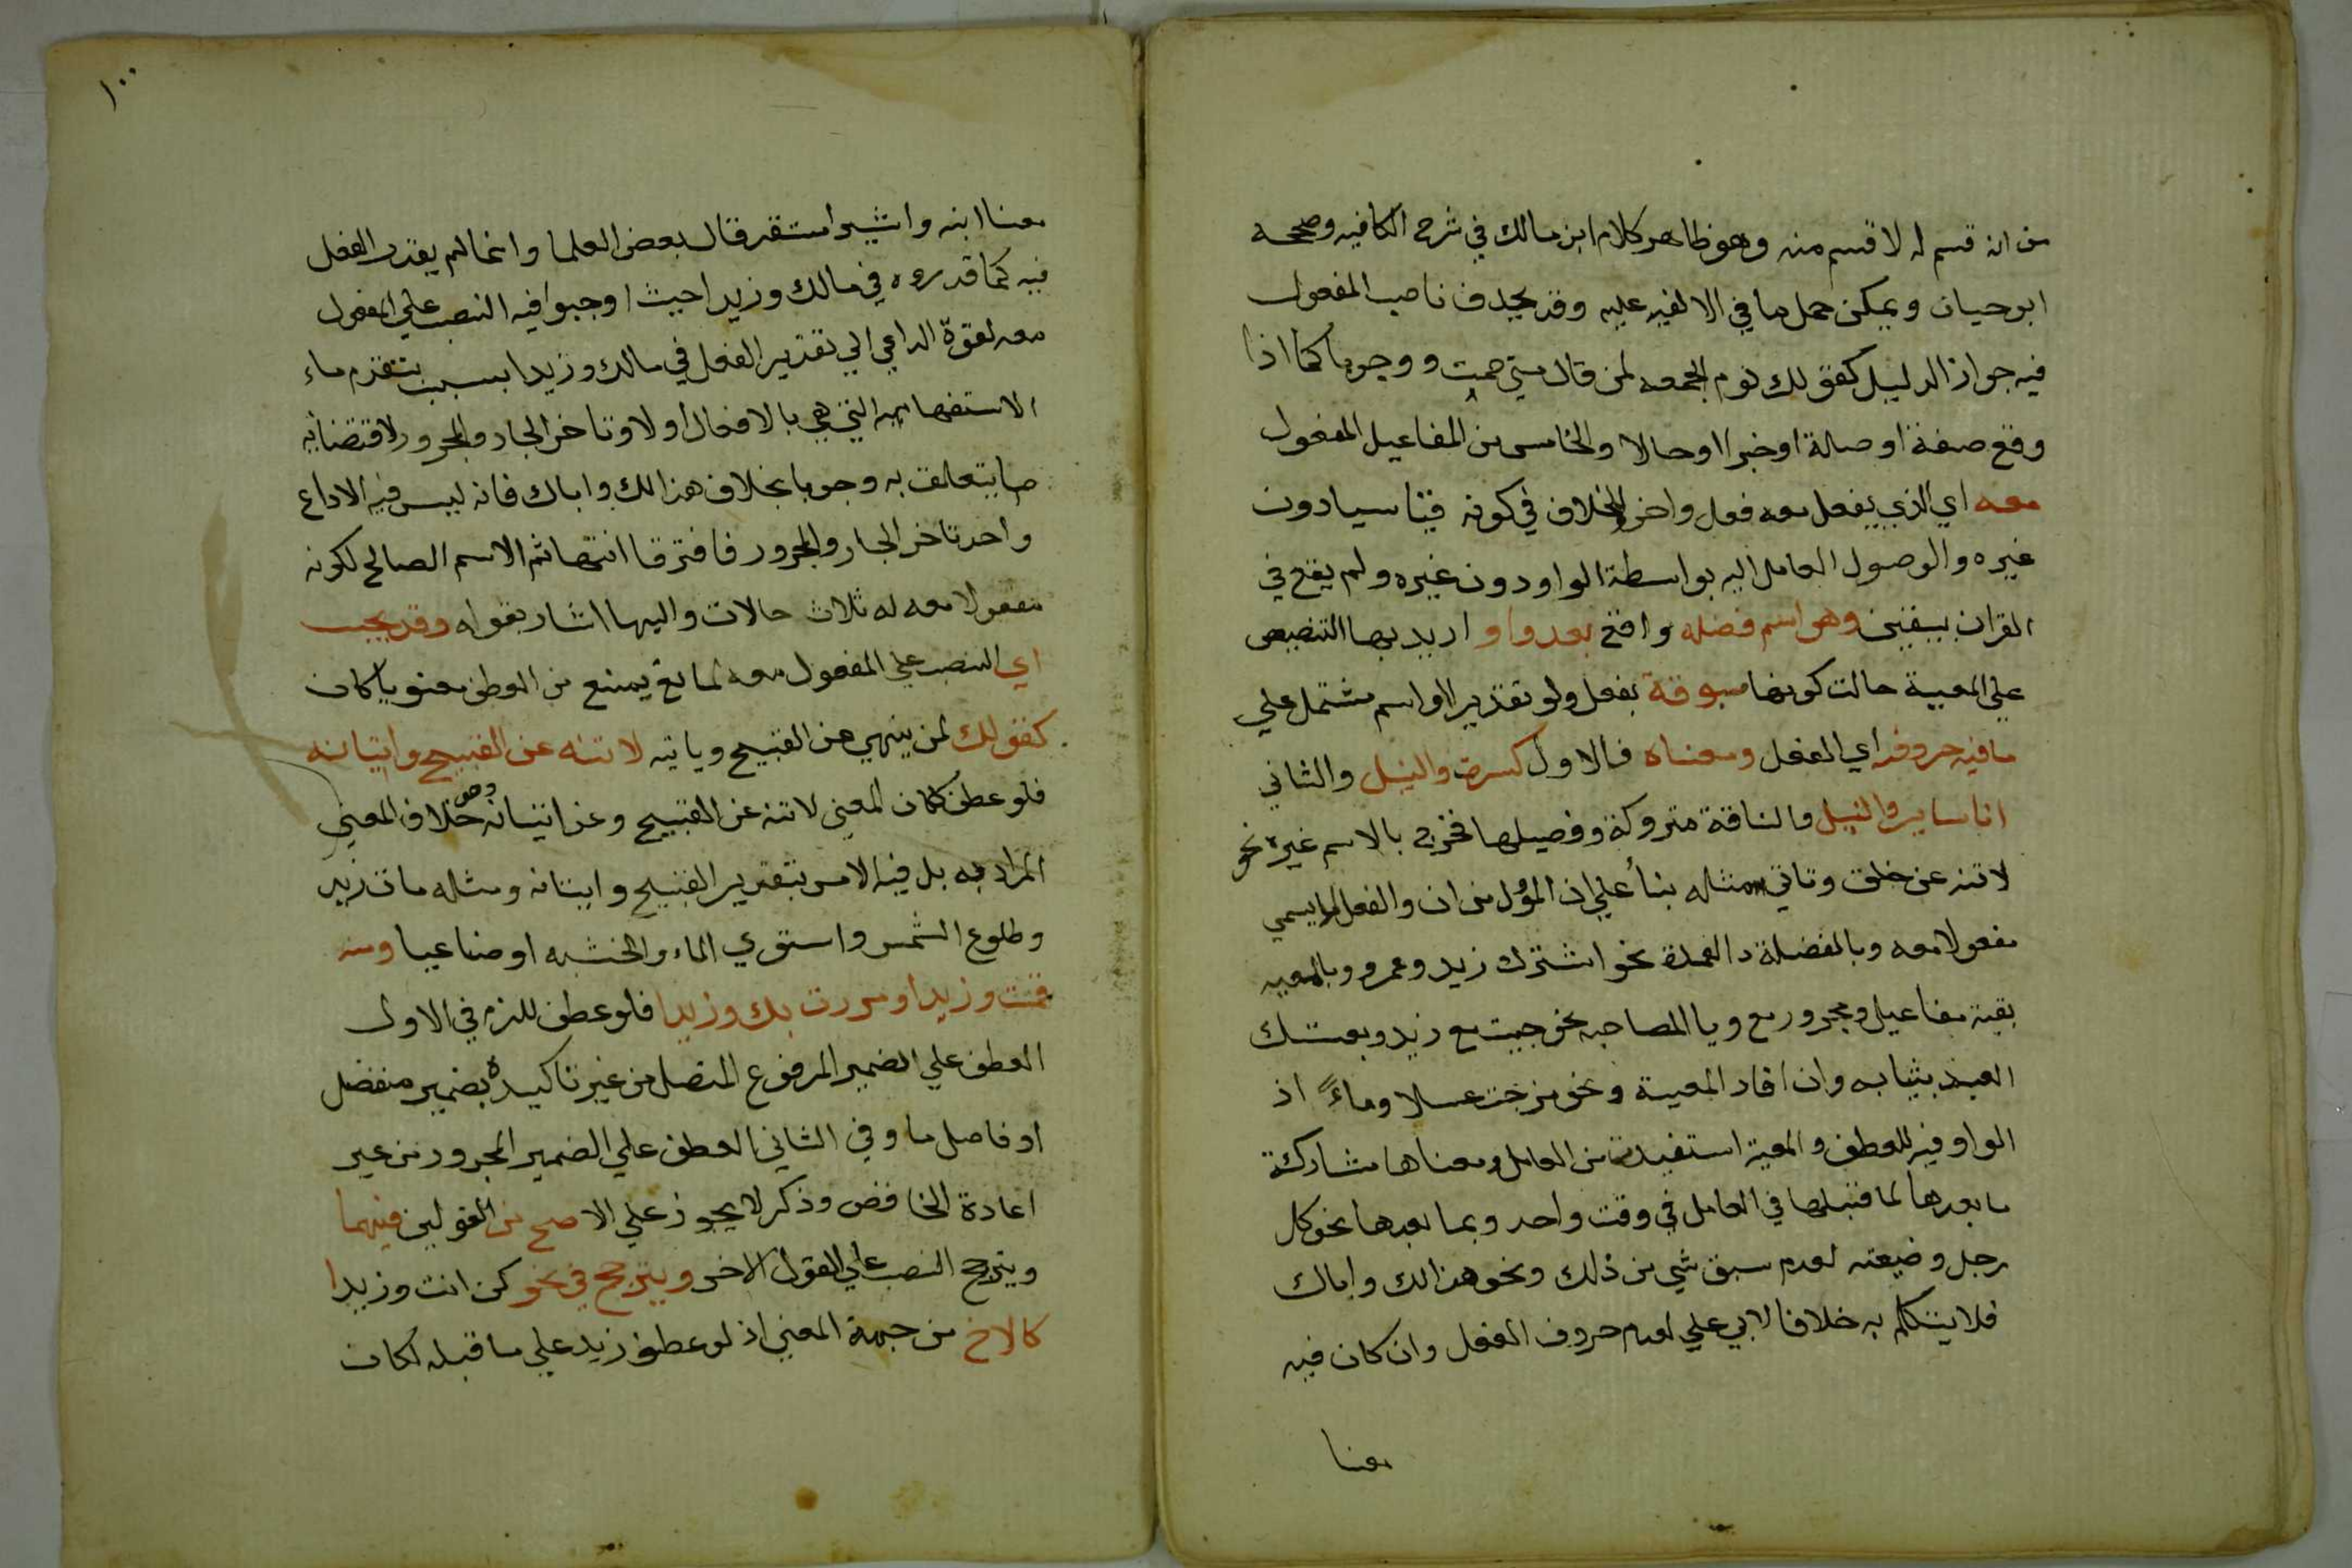 من انه قسم له لا قسم منه وهو ظاهر كلام ابن مالك في شرح الكافيه وصححه
ابو حيان ويمكن حمل ما في الالفيه عليه وقد يحذف ناصب المفعول
فيه جوازا لدليل كقولك يوم الجمعه لمن قال متي صمت ووجوبا كما اذا
وقع صفة او صلة او خبرا او حالا والخامس من المفاعيل المفعول
معه اي الذي يفعل معه فعل واخر للخلاف في كونه قياسيا دون
غيره والوصول العامل اليه بواسطة الواو دون غيره ولم يقع في
القران بيقين وهو اسم فضله واقع بعد واو اريد بها التنصيص
علي المعية حالت كونها مسبوقة بفعل ولو تقديرا او اسم مشتمل علي
ما فيه حروفه اي الفعل ومعناه فالاول كسرت والنيل والثاني
انا ساير والنيل والناقة متروكة وفصيلها فخرج بالاسم غيره نحو
لا تنه عن خلق وتاتي مثله بنأ علي ان المؤل من ان والفعل لا يسمي
مفعولا معه وبالفضلة العمدة نحو اشترك زيد وعمرو وبالمعيه
بقية مفاعيل ومجرور مع وبا المصاحبه نحو جيت مع زيد وبعتك
العبد بثيابه وان افاد المعية ونحو مزجت عسلا وماءً اذ
الواو فيه للعطف والمعية استفيدت من العامل ومعناها مشاركة
ما بعدها لما قبلها في العامل في وقت واحد وبما بعدها نحو كل
رجل وضيعته لعدم سبق شي من ذلك ونحو هذا لك واباك
فلا يتكلم به خلافا لابي علي لعدم حروف الفعل وان كان فيه
معنا
١٠٠
معنا ابنه واشير استقر قال بعض العلما وانما لم يقدر الفعل
فيه كما قدروه في مالك وزيدا حيث اوجبوا فيه النصب علي المفعول
معه لقوة الداعي الي تقدير الفعل في مالك وزيدا بسبب تقدم ماء
الاستفهاميه التي هي بالافعال أولا وتاخر الجار والمجرور لاقتضايه
ما يتعلق به وجوبا بخلاف هذا لك واباك فانه ليس فيه الا داع
واحد تاخر الجار والمجرور فافترقا انتها ثم الاسم الصالح لكونه
مفعولا معه له ثلاث حالات واليها اشار بقوله وقد يجب
اي النصب علي المفعول معه لمانع يمنع من العطف معنويا كان
كقولك لمن ينهي عن القبيح وياتيه لا تنه عن القبيح واتيانه
فلو عطف لكان المعني لا تنه عن القبيح وعن اتيانه وهو خلاف المعني
المراد به بل فيه الامر بتقدير القبيح وايتانه ومثله مات زيد
وطلوع الشمس واستوي الماء والخشبه او صناعيا ومنه
قمت وزيدا ومررت بك وزيدا فلو عطف للزم في الاول
العطف علي الضمير المرفوع المتصل من غير تاكيده بضمير منفصل
او فاصل ما وفي الثاني العطف علي الضمير المجرور من غير
اعادة الخافض وذكر لا يجوز علي الاصح من القولين فيهما
ويترجح النصب علي القول الاخر ويترجح في نحو كن انت وزيدا
كالاخ من جهة المعني اذ لو عطف زيد علي ما قبله لكان